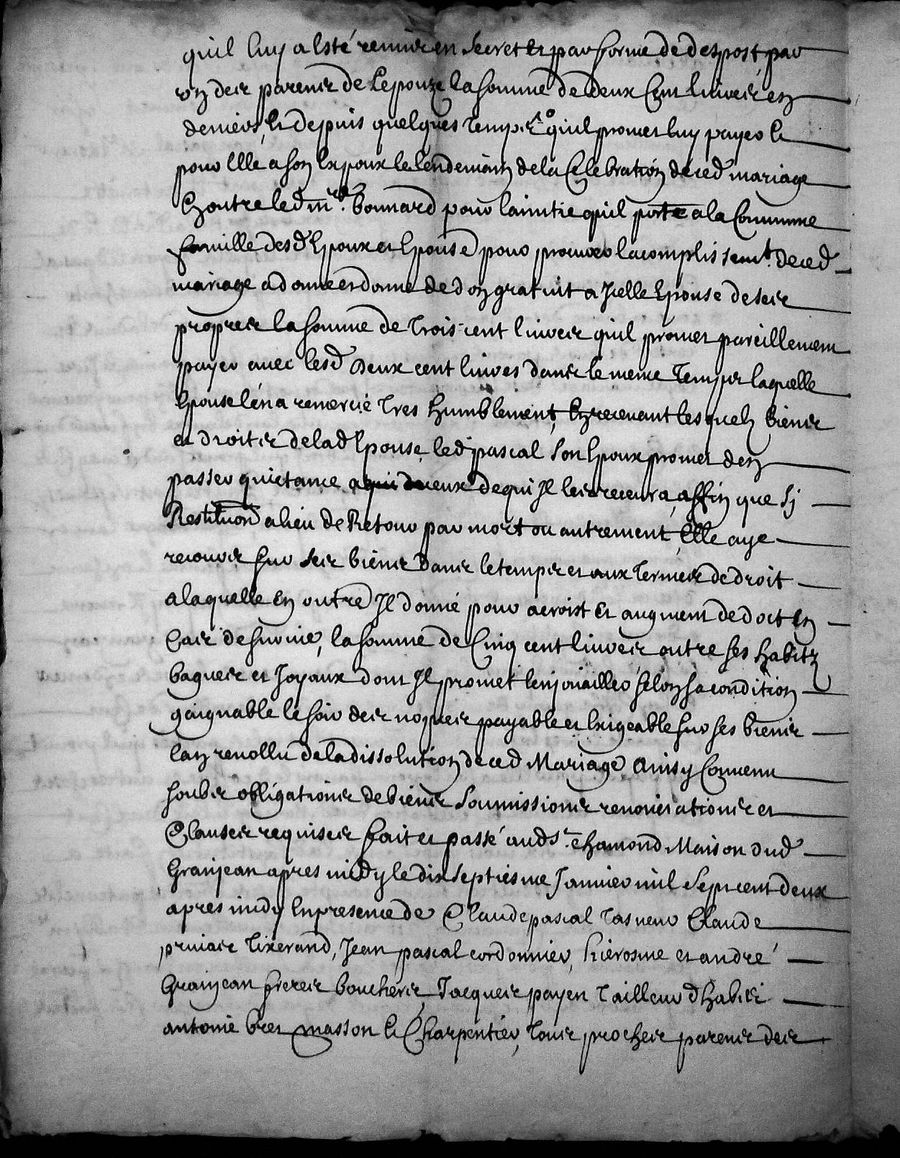 quil luy a lsté remise en secret et par forme de despost par
un des parens de l'epouze la somme de deux cent livres en
deniers, Et depuis quelques temps quil promet luy payer et
pour Elle a son Epoux le lendemain de la Celebration de ced mariage
Et outre led mre bonnard pour lamitie quil porte a la Commune
famille desd Epoux et Epouse pour prouver lacomplissemt de ced
mariage a donne et donne de don gratuit a Jcelle Epouse de ses
propres la somme de Trois cent livres quil promet pareillement
payer avec lesd deux cent livres dans le meme Temps laquelle
Epouse len a remercie Tres humblement, En recevant lesquels biens
et droits de lad Epouse led pascal son Epoux promet den
passer quictance a ceux de qui Jl les recevra affin que sy
Restition a lieu de Retour par mort ou autrement, Elle aye
recours sur ses biens dans le temps et aux Termes de droit
a laquelle En outre Jl donne pour acroist et augment de dot En
Cas de survie, la somme de Cinq cent livres outre ses habitz
bagues et Joyaux dont Jl promet lenjouailler selon sa condition
gaignable le soir des nopces payable et Exigeable sur ses biens
lan revollu de la dissolution de ced Mariage Ainsy Convenu
soubs obligations de biens soumissions renonciations et
Clauses requises fait et passé aud St chamond Maison dud
Granjean apres midy le dix septiesme Janvier mil sept cent deux
apres midy En presence de Claude pascal Tasneur Claude
privas Tixerand, Jean pascal cordonnier, hierosme et andré
Granjean freres bouchers, Jacques payen Tailleur dhabits
antoine bres masson et Charpentier, Tous proches parens des